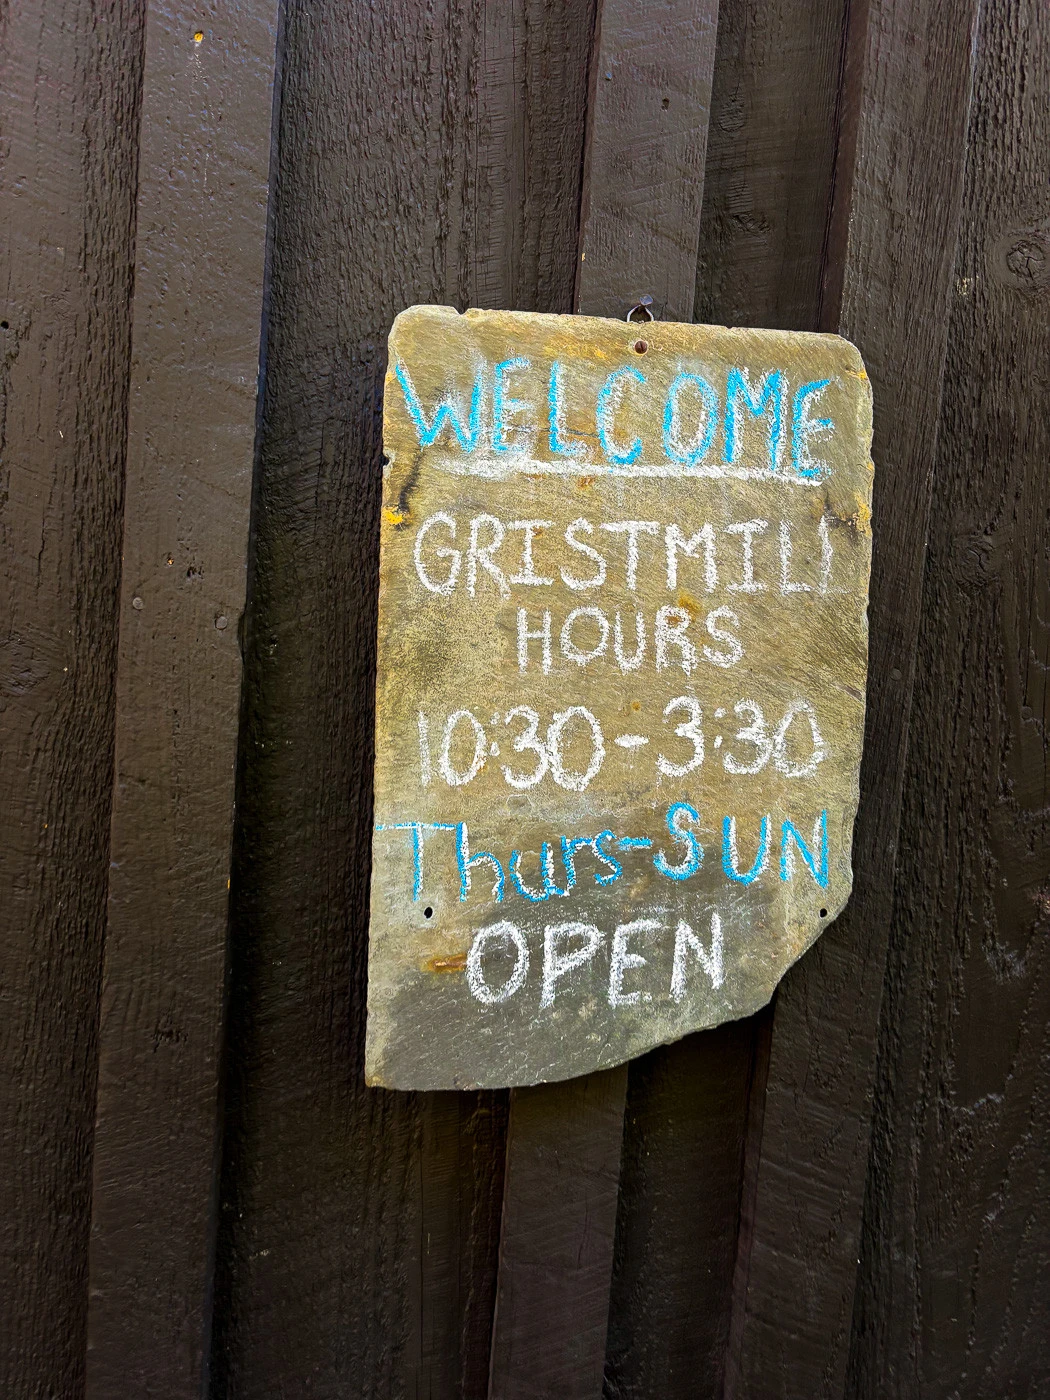 WELCOME
GRISTMILL
HOURS
10:30-3:30
Thurs-SUN
OPEN